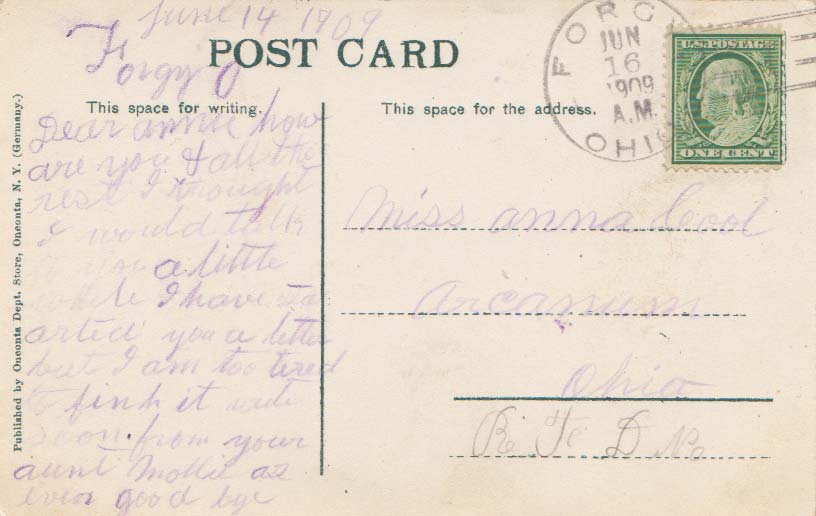 June 14 1909
Forgy O
POST CARD
This space for writing.
This space for the address.
FORGY
JUN
16
1909
A.M.
OHIO
U.S. POSTAGE
ONE CENT
Dear annie how
are you & all the
rest I thought
I would talk
to you a little
while I have st
arted you a letter
but I am too tired
to finh it write
soon from your
aunt Mollie as
ever good bye
Miss anna Cool
Arcanum
Ohio
R F D No
Published by Oneonta Dept. Store, Oneonta, N. Y. (Germany.)